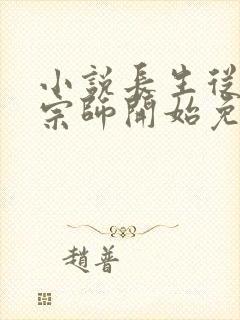 小說長生從
宗師開始免
趙普